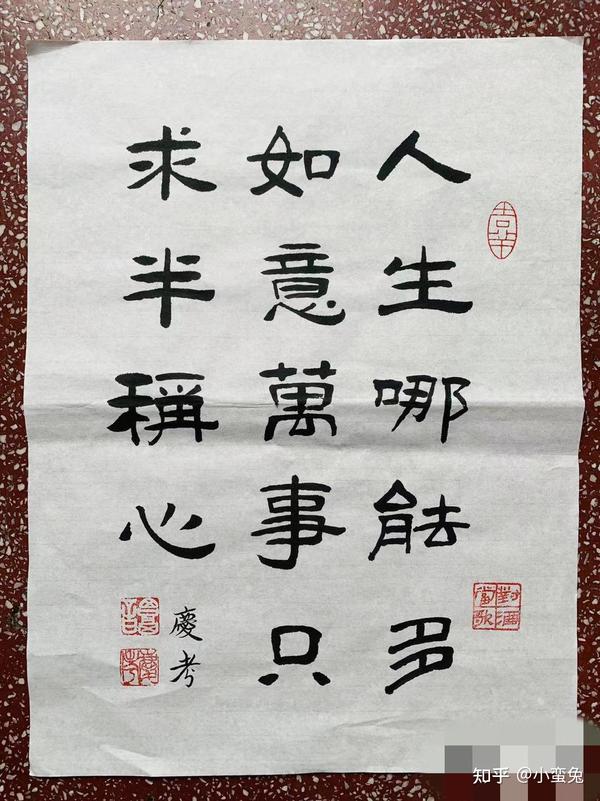 人生哪能多
如意萬事只
求半稱心
慶考
對酒當歌
知乎 @小蛮兔